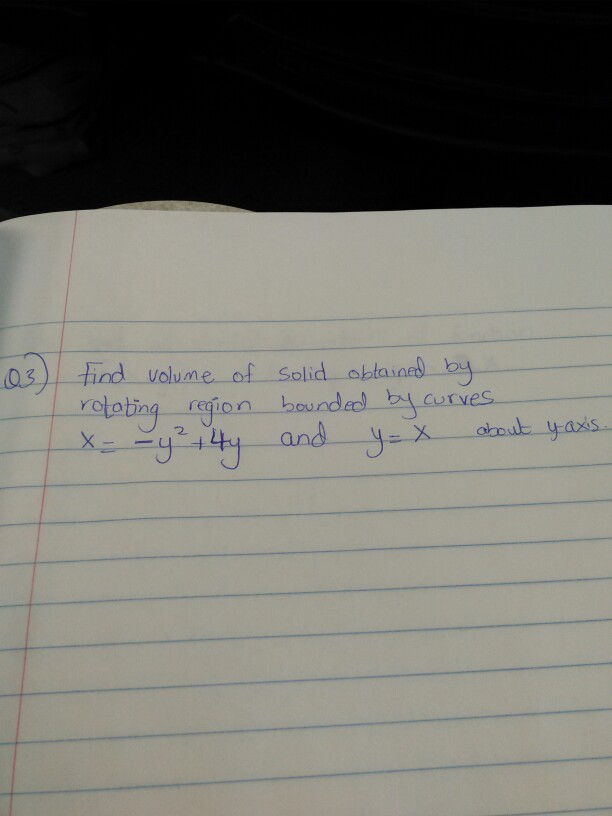 Q3) Find volume of solid obtained by
rotating region bounded by curves
x = -y² + 4y and y = x about y-axis.